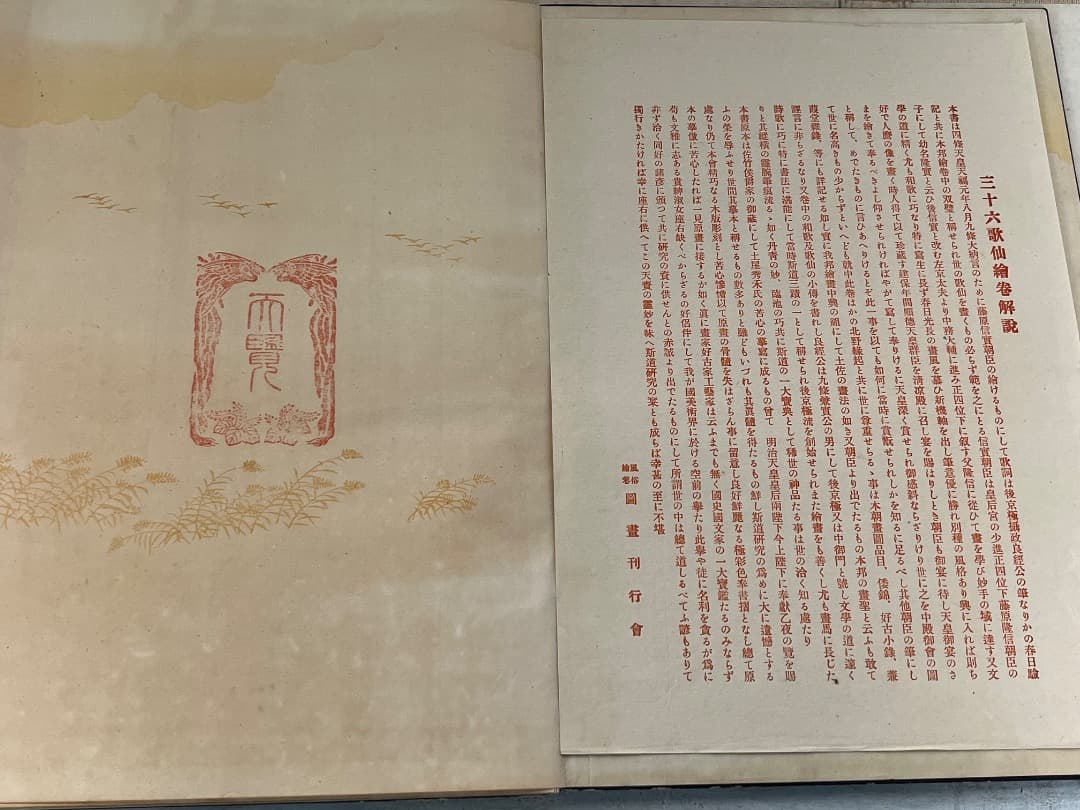 三十六歌仙繪卷解說
本書は四條天皇天福元年八月九條大納言のために藤原信實朝臣の繪けるものにして歌詞は後京極攝政良經公の筆なりかの春日驗
記と共に本邦繪卷中の双璧と稱せられ世の歌仙を畫くもの必らず範を之にとる信實朝臣は皇后宮の少進正四位下藤原隆信朝臣の
子にして幼名隆實と云ひ後信實と改む左京太夫より中務大輔に進み正四位下に叙す父隆信に從ひて畫を學び妙手の域に達す又文
學の道に精く尤も和歌に巧なり特に寫生に長ず春日光長の畫風を慕ひ新機軸を出し筆意優に勝れ別種の風格あり興に入れば則ち
好で人麿の像を畫く時人得て以て珍藏す建保年間順德天皇群臣を淸凉殿に召し宴を賜はりしとき朝臣も御宴に待し天皇御宴のさ
まを繪きて奉るべきよし仰させられければやがて寫して奉りけるに天皇深く賞せられ御感斜ならざりけり世に之を中殿御會の圖
と稱して、めでたきものに言ひあへりけるとぞ此一事を以ても如何に當時に賞翫せられしかを知るに足るべし其他朝臣の筆にし
て世に名高きもの少からずといへども就中此卷はかの北野緣起と共に世に尊重せらるゝ事は本朝畫圖品目、倭錦、好古小錄、蒹
葭堂雜錄、等にも詳記せる如し實に我邦繪畫中興の祖にして土佐の畫法の如き又朝臣より出でたるもの本邦の畫聖と云ふも敢て
謹言に非らざるなり又卷中の和歌及歌仙の小傳を書れし良經公は九條兼實公の男にして後京極又は中御門と號し文學の道に達く
詩歌に巧に特に書法に堪能にして當時斯道三蹟の一として稱せられ後京極流を創始せられまた繪畫をも善くし尤も畫馬に長じた
りと其縱橫の靈腕筆痕流るゝ如く丹靑の妙、臨池の巧共に斯道の一大寶典として稀世の神品たる事は世の洽く知る處たり
本書原本は佐竹侯爵家の御藏にして土屋秀禾氏の苦心の摹寫に成るもの曾て　明治天皇皇后兩陛下今上陛下に奉獻乙夜の覽を賜
ふの榮を辱ふせり世間其摹本と稱せるもの數多ありと雖どもいづれも其眞髓を得たるもの鮮し斯道硏究の爲めに大に遺憾とする
處なり仍て本會精巧なる木版彫刻とし苦心慘憺以て原畫の骨髓を失はざらん事に留意し良好鮮麗なる極彩色奉書摺となし總て原
本の摹倣に苦心したれば一見原畫に接するか如く眞に畫家好古家工藝家は云ふまでも無く國史國文家の一大寶鑑たるのみならず
苟も文雅に志ある貴紳淑女座右缺くべからざるの好侶伴にして我が國美術界に於ける空前の擧たり此擧や徒に名利を貪るが爲に
非ず洽く同好の諸彥に頒つて共に硏究の資に供せんとの赤誠より出でたるものにして所謂世の中は總て道しるべてふ諺もありて
獨行きかたければ幸に座右に供へてこの天畫の靈妙を味へ斯道硏究の栞とも成らば幸甚の至に不堪
風俗繪卷圖畫刊行會
天覽